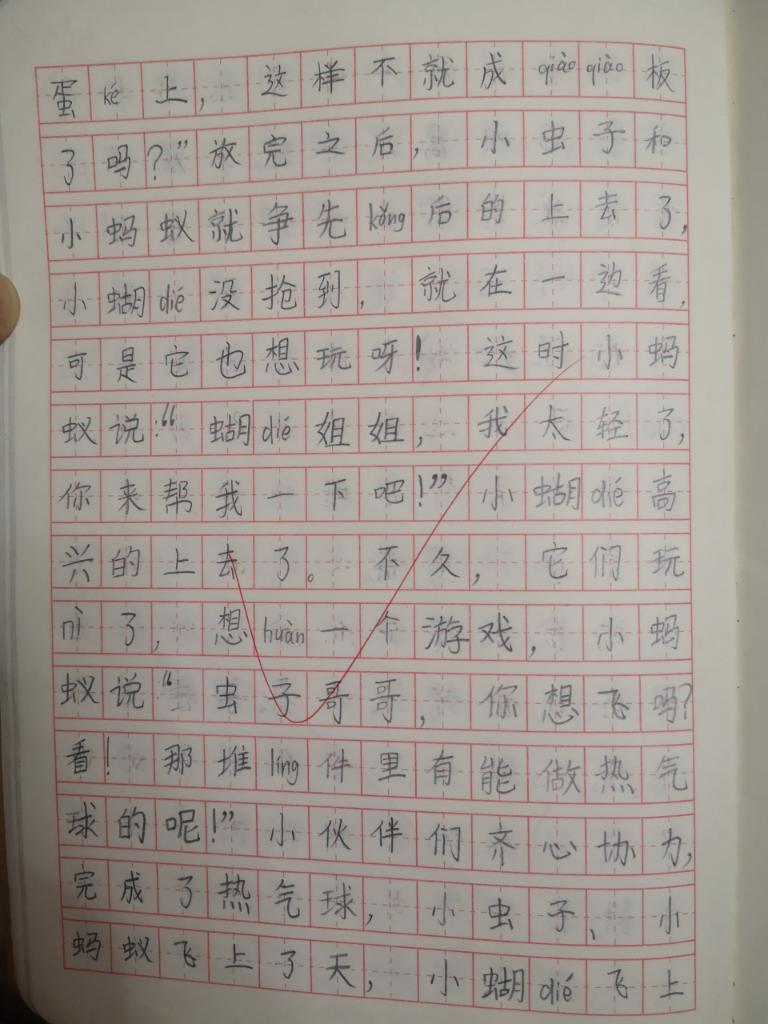 蛋ké上，这样不就成qiàoqiào板
了吗？”放完之后，小虫子和
小蚂蚁就争先kǒng后的上去了，
小蝴dié没抢到，就在一边看，
可是它也想玩呀！这时小蚂
蚁说：“蝴dié姐姐，我太轻了，
你来帮我一下吧！”小蝴dié高
兴的上去了。不久，它们玩
nì了，想huàn一个游戏，小蚂
蚁说“虫子哥哥，你想飞吗？
看！那堆líng件里有能做热气
球的呢！”小伙伴们齐心协力，
完成了热气球，小虫子、小
蚂蚁飞上了天，小蝴dié飞上